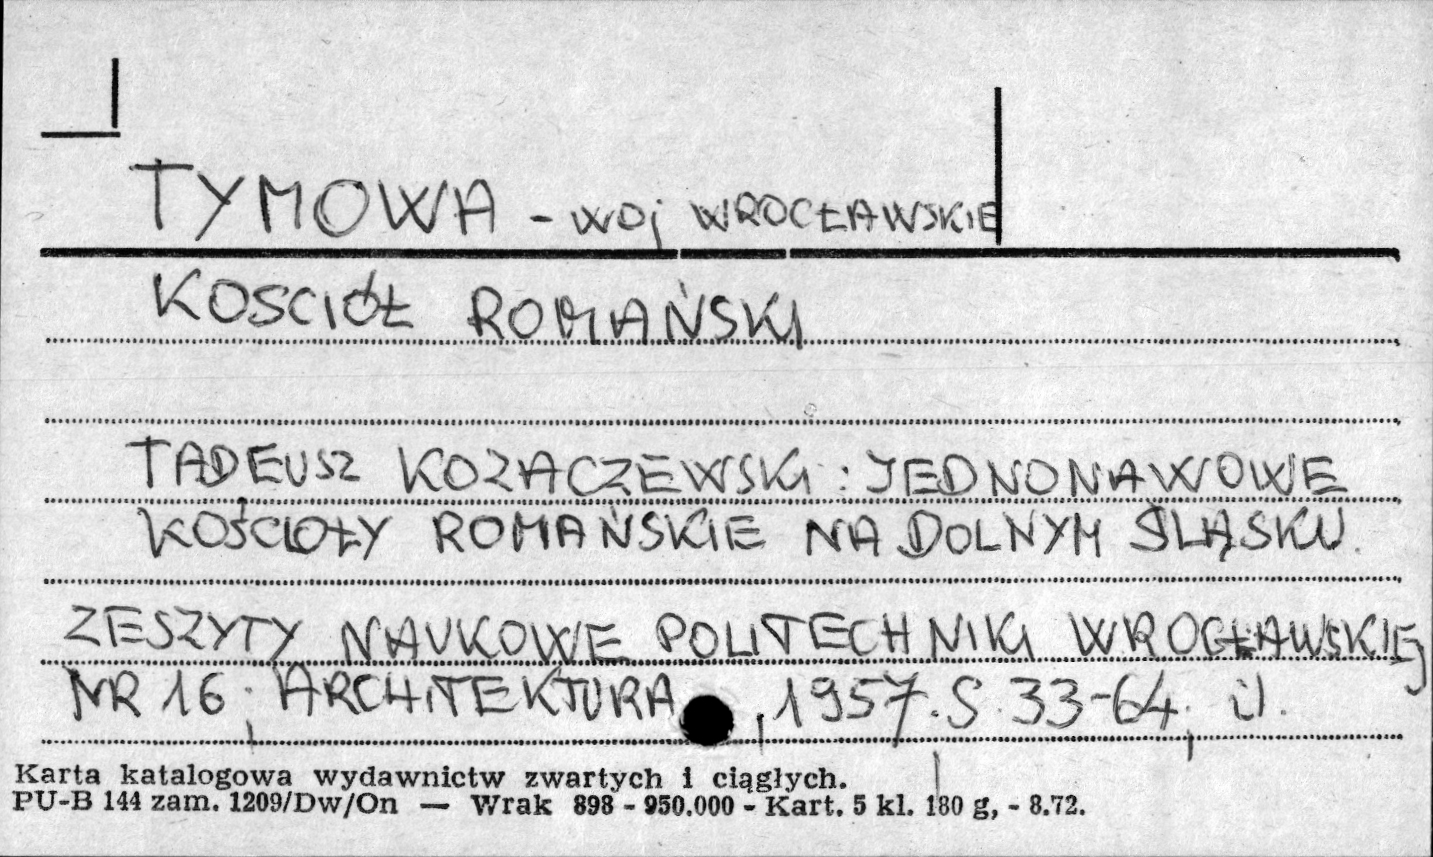 TYMOWA - WOJ WROCŁAWSKIE
KOSCIÓŁ ROMAŃSKI
TADEUSZ KOZACZEWSKI: JEDNONAWOWE
KOŚCIOŁY ROMAŃSKIE NA DOLNYM ŚLĄSKU.
ZESZYTY NAUKOWE POLITECHNIKI WROCŁAWSKIEJ
NR 16; ARCHITEKTURA, 1957. S. 33-64, il.
Karta katalogowa wydawnictw zwartych i ciągłych.
PU-B 144 zam. 1209/Dw/On — Wrak 898 - 950.000 - Kart. 5 kl. 180 g, - 8.72.